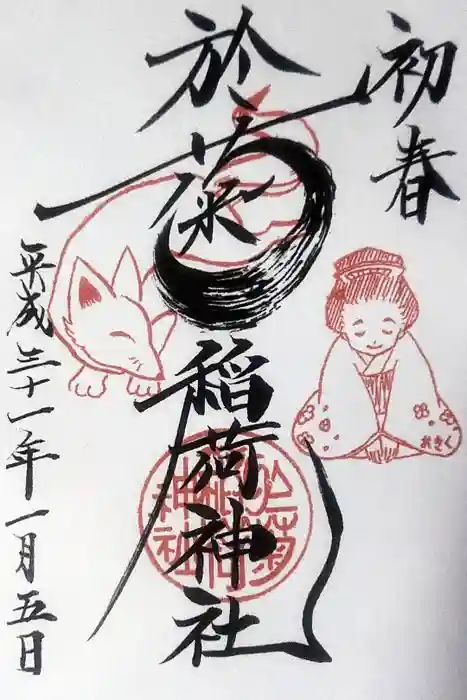 初春
於菊稲荷神社
平成三十一年一月五日
於菊
稲荷
神社
おきく